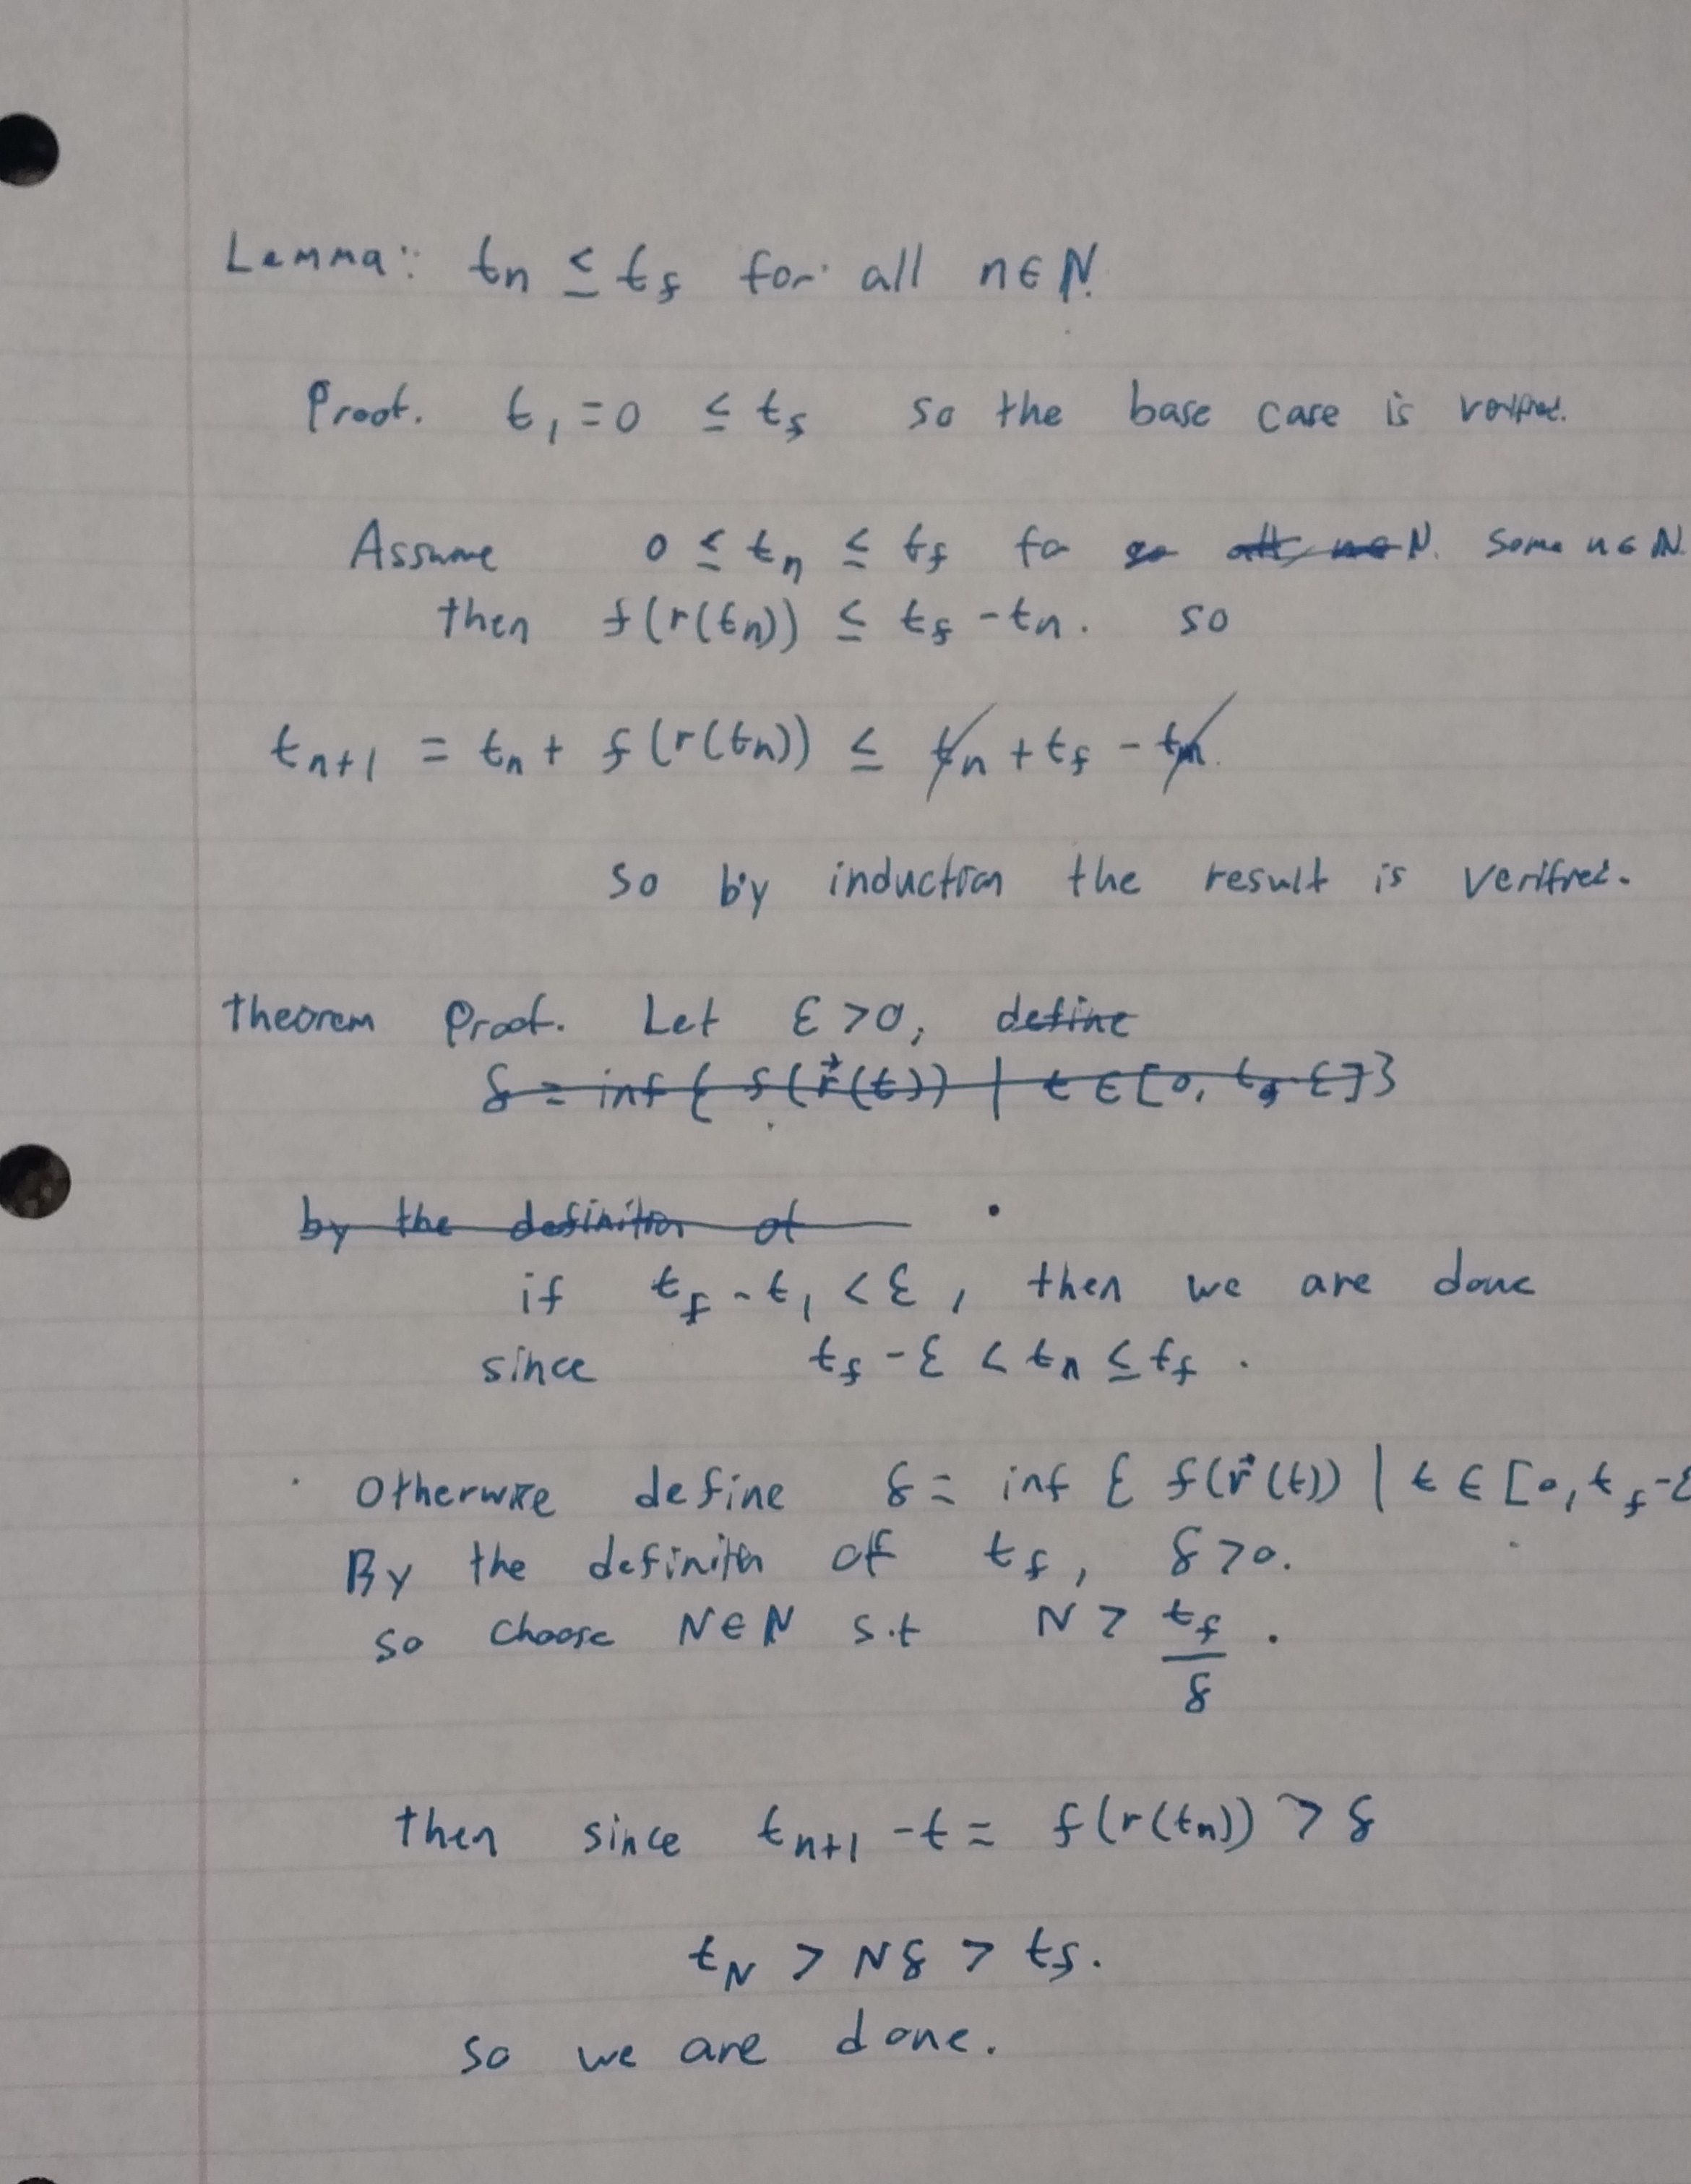 Lemma: tn ≤ tf for all n∈ℕ.
Proof. t1 = 0 ≤ tf so the base case is verified.
Assume 0 ≤ tn ≤ tf for some n∈ℕ.
then f(r(tn)) ≤ tf - tn. so
tn+1 = tn + f(r(tn)) ≤ tn + tf - tn.
so by induction the result is verified.
theorem Proof. Let ε>0, define
δ = inf { f(r⃗(t)) | t ∈ [0, tf-ε]}
by the definition of
if tf - t1 < ε, then we are done
since tf - ε < tn ≤ tf.
Otherwise define δ = inf { f(r⃗(t)) | t ∈ [0, tf-ε
By the definition of tf, δ>0.
so choose N∈ℕ s.t N > tf/δ.
then since tn+1 - t = f(r(tn)) > δ
tN > Nδ > tf.
so we are done.